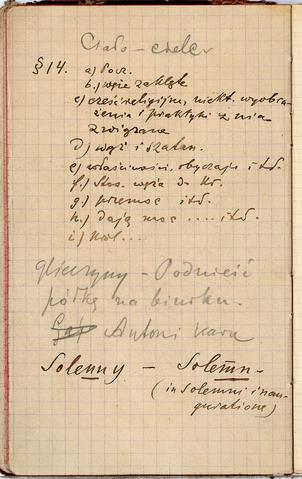 Ciało – cielec
§ 14. a) Pocz.
b.) węże zaklęte
c) cześć religijna, niekt. wyobra-
żenia i praktyki z nią
związane
d) wąż i szatan.
e) właściwości, obyczaje itd.
f.) Stos. węża do
g.) przemoc itd.
h.) dają moc .... itd.
i) Król...
gliceryny – Podnieść
półkę na biurku.
Antoni kara
Solenny – Solemn-
(in solemni inau-
guratione)